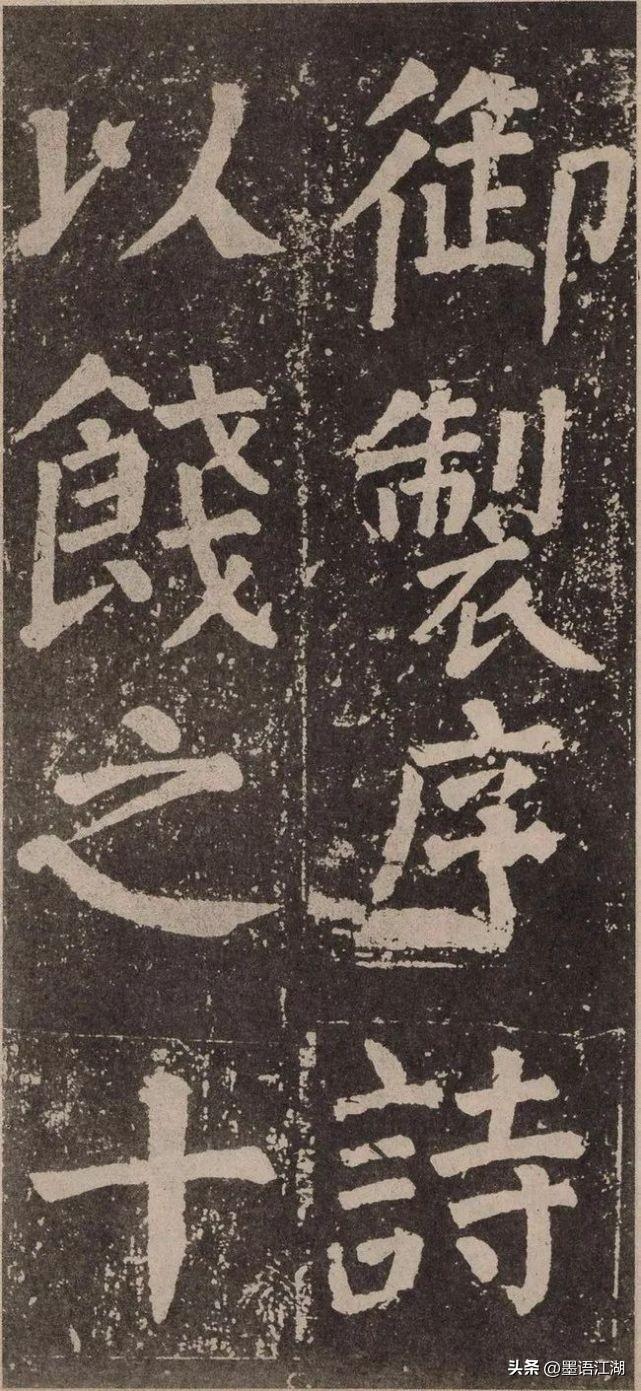 御製序詩
以餞之十
头条 @墨语江湖